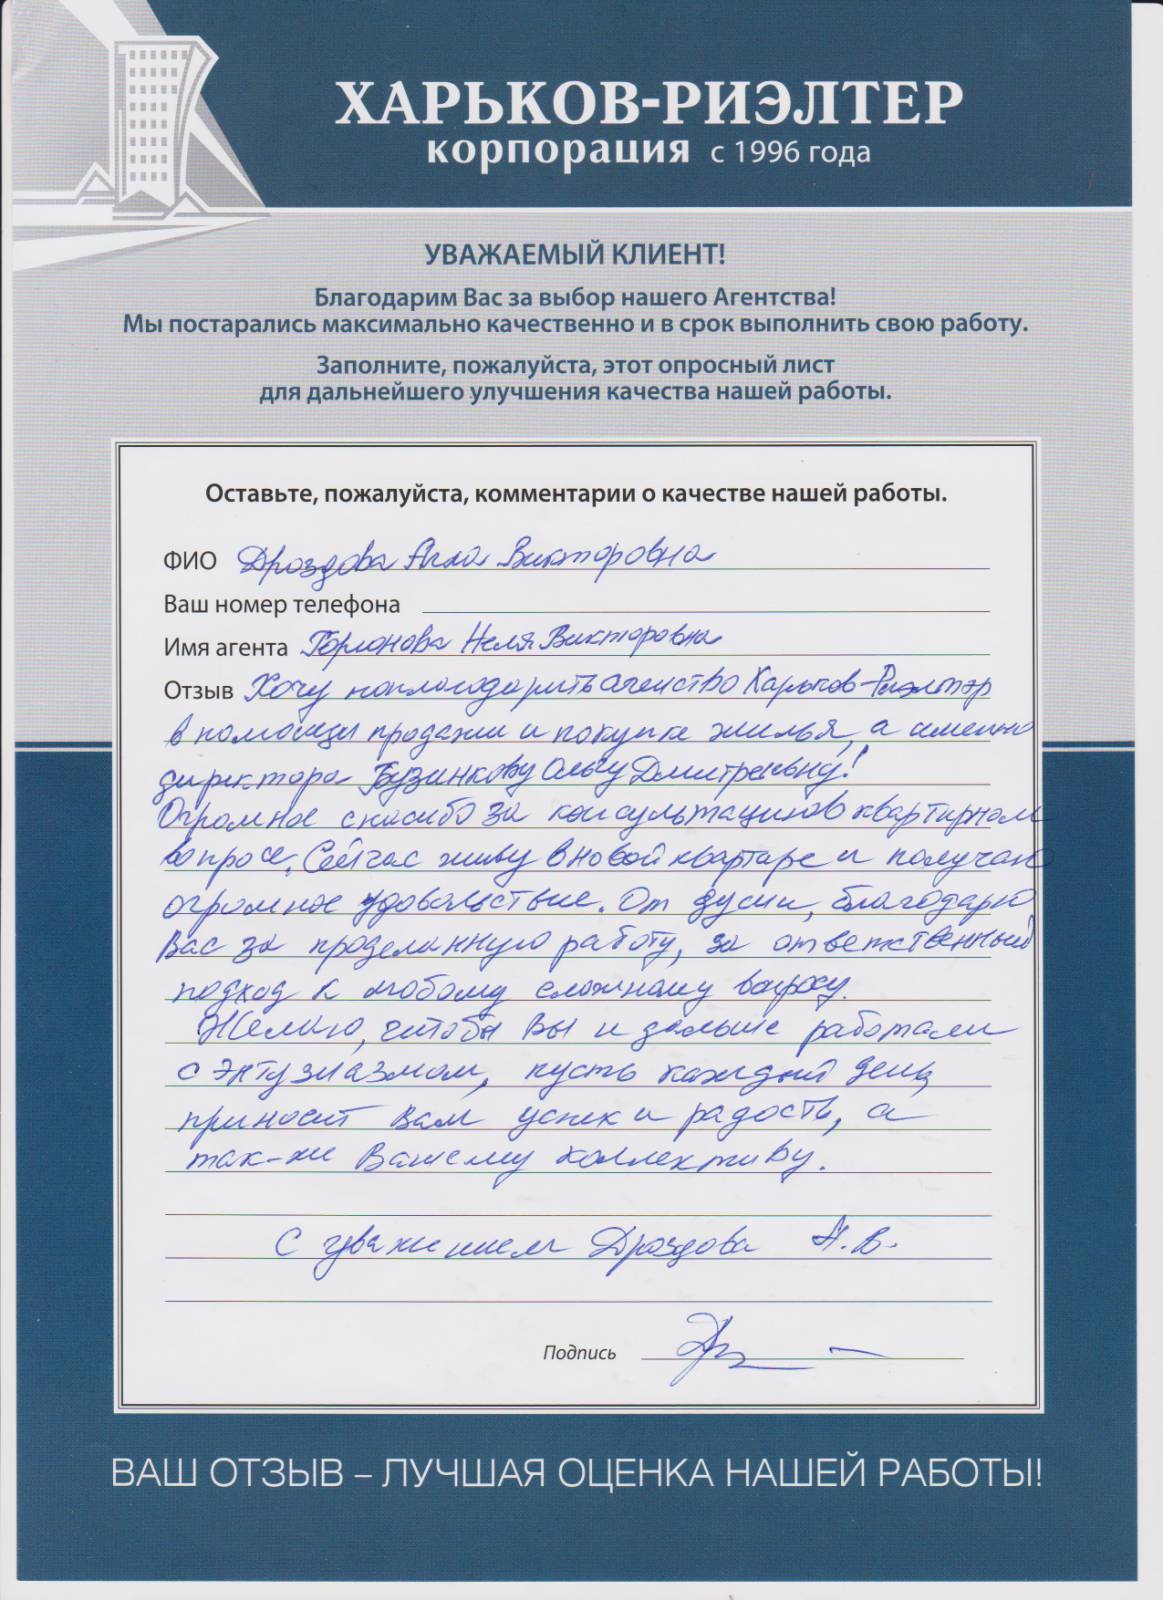 ХАРЬКОВ-РИЭЛТЕР
корпорация с 1996 года
УВАЖАЕМЫЙ КЛИЕНТ!
Благодарим Вас за выбор нашего Агентства!
Мы постарались максимально качественно и в срок выполнить свою работу.
Заполните, пожалуйста, этот опросный лист
для дальнейшего улучшения качества нашей работы.
Оставьте, пожалуйста, комментарии о качестве нашей работы.
ФИО Дроздова Алла Викторовна
Ваш номер телефона
Имя агента Неля Викторовна
Отзыв Хочу поблагодарить агенство Харьков-Риэлтэр
в помощи продажи и покупке жилья, а именно
директора Бузинкову Ольгу Дмитреевну!
Огромное спасибо за консультацию в квартирном
вопросе. Сейчас живу в новой квартире и получаю
огромное удовольствие. От души, благодарю
Вас за проделанную работу, за ответственный
подход к любому сложному вопросу.
Желаю, чтобы Вы и дальше работали
с энтузиазмом, пусть каждый день
приносит Вам успех и радость, а
так-же Вашему коллективу.
С уважением Дроздова А.В.
Подпись
ВАШ ОТЗЫВ – ЛУЧШАЯ ОЦЕНКА НАШЕЙ РАБОТЫ!